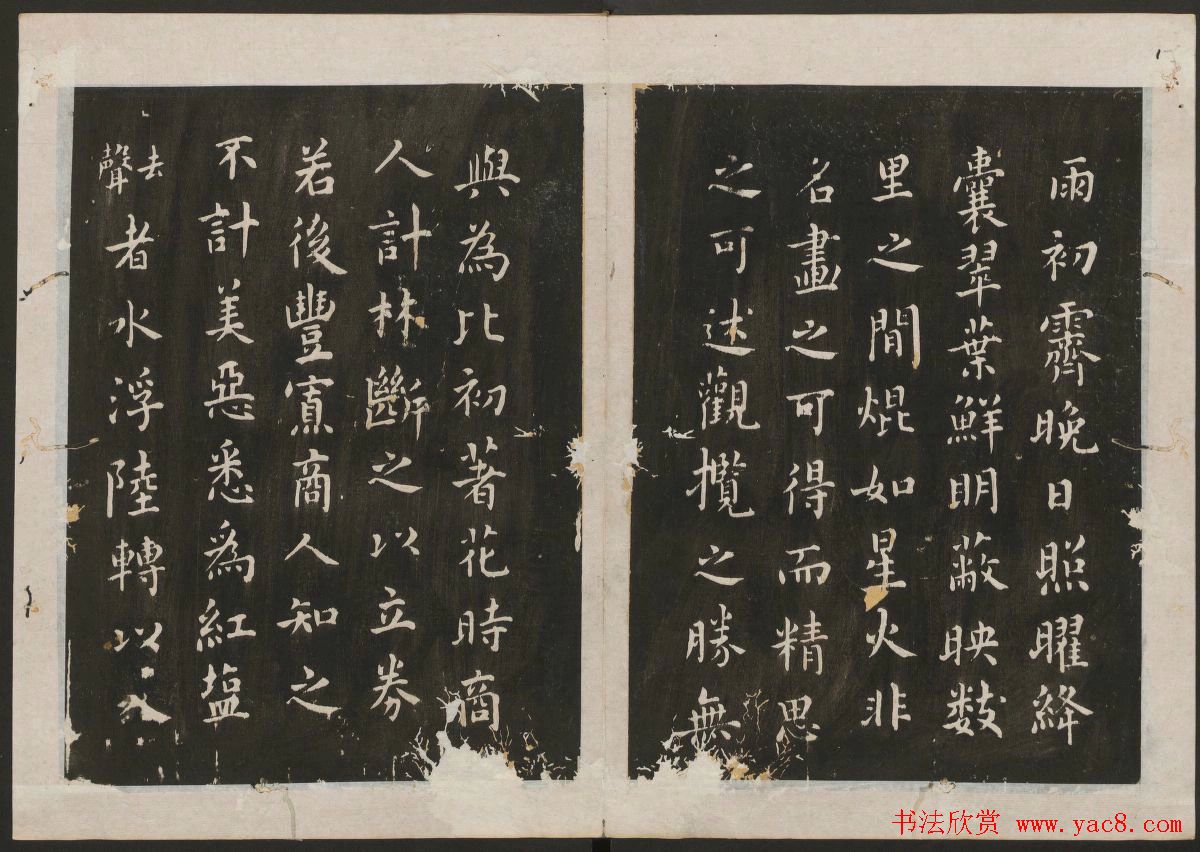 雨初霽晚日照曜絳
囊翠葉鮮明蔽映數
里之間焜如星火非
名畫之可得而精思
之可述觀攬之勝無
與為比初著花時商
人計林斷之以立券
若後豐寡商人知之
不計美惡悉為紅塩
去聲者水浮陸轉以入
书法欣赏 www.yac8.com